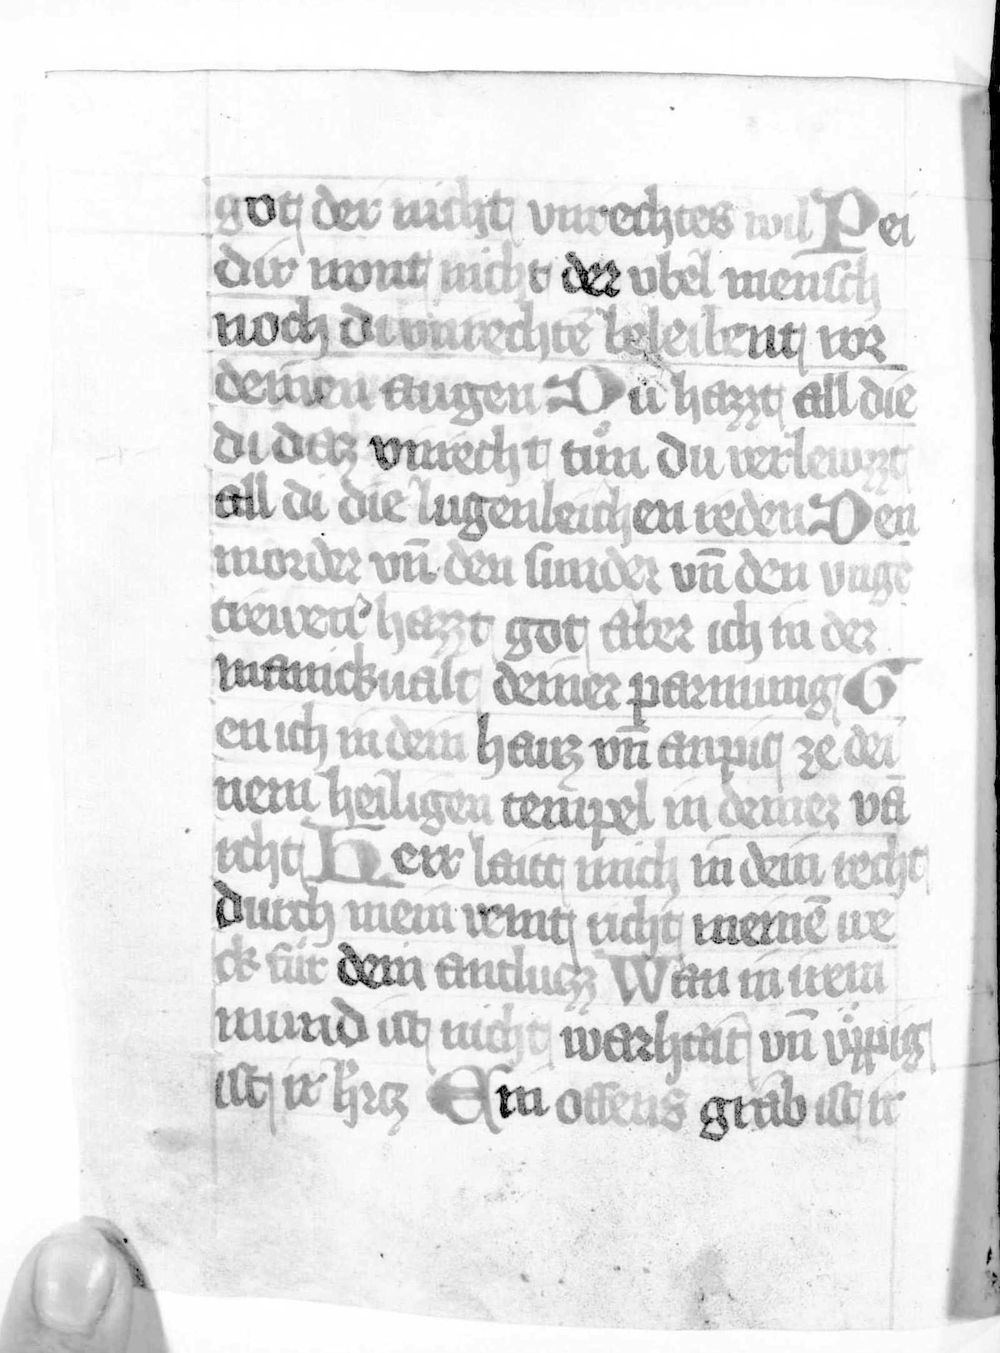 got der nicht vnrechtes wil Pei
dir wont nicht der vbel mensch
noch di vnrechtē beleibent vor
deinen augen Du hazzt all die
di daz vnrecht tůn du verlewzzt
all di die lugenleichen reden Den
morder vn̄ den sunder vn̄ den vnge
trewen hazzt got aber ich in der
manickualt deiner parmung G
en ich in dein hauz vn̄ anpit ze dei
nem heiligen tempel in deiner vā
rcht Herr lait mich in dein recht
durch mein veint richt meinē we
ck für dein antlucz Wan in irem
mund ist nicht warhait vn̄ üppig
ist ir hercz Ein offens grab ist ir